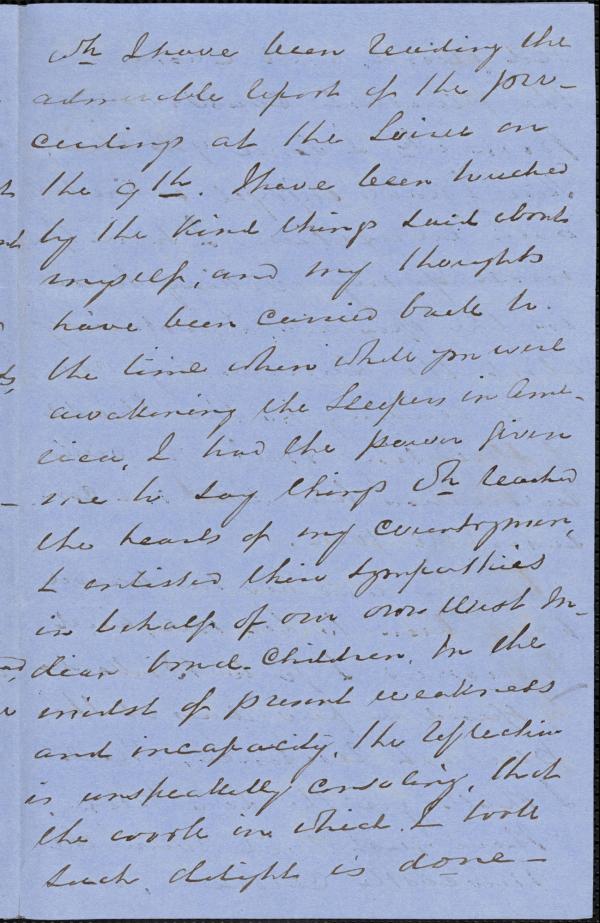 wh I have been reading the
admirable report of the pro-
ceedings at the Soiree on
the 9th. I have been touched
by the kind things said about
myself, and my thoughts
have been carried back to
the time when while you were
awakening the sleepers in Ame-
rica, I had the power given
me to say things wh reached
the hearts of my countrymen,
& enlisted their sympathies
in behalf of our own West In-
dian bond-children. In the
midst of present weakness
and incapacity, the reflection
is unspeakably consoling, that
the work in which I took
such delight is done—